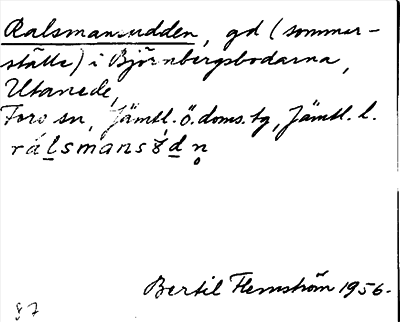 Ralsmansudden, gd (sommar-
ställe) i Björnbergsbodarna,
Utanede,
Fors sn, Jämtl. ö. doms. tg, Jämtl. l.
Bertil Flemström 1956.
87